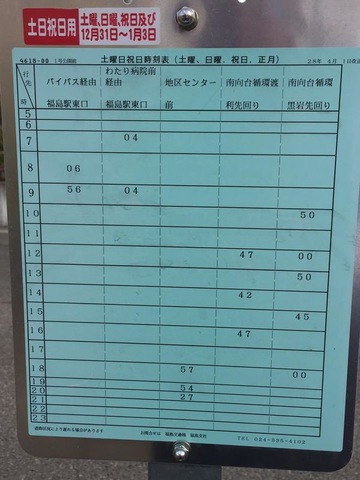 土日祝日用 土曜、日曜、祝日及び
12月31日～1月3日
4616-00 1号公園前 土曜日祝日時刻表（土曜、日曜、祝日、正月） 28年 4月 1日改正
行先 時
バイパス経由 福島駅東口
わたり病院前経由 福島駅東口
地区センター前
南向台循環渡利先回り
南向台循環黒岩先回り
5
6
7 04
8 06
9 56 04
10 50
11
12 47 00
13 50
14 42
15 45
16 47
17
18 57 00
19
20 54
21 27
22
23
道路状況により遅れる場合があります お問合せは 福島交通㈱ 福島支社